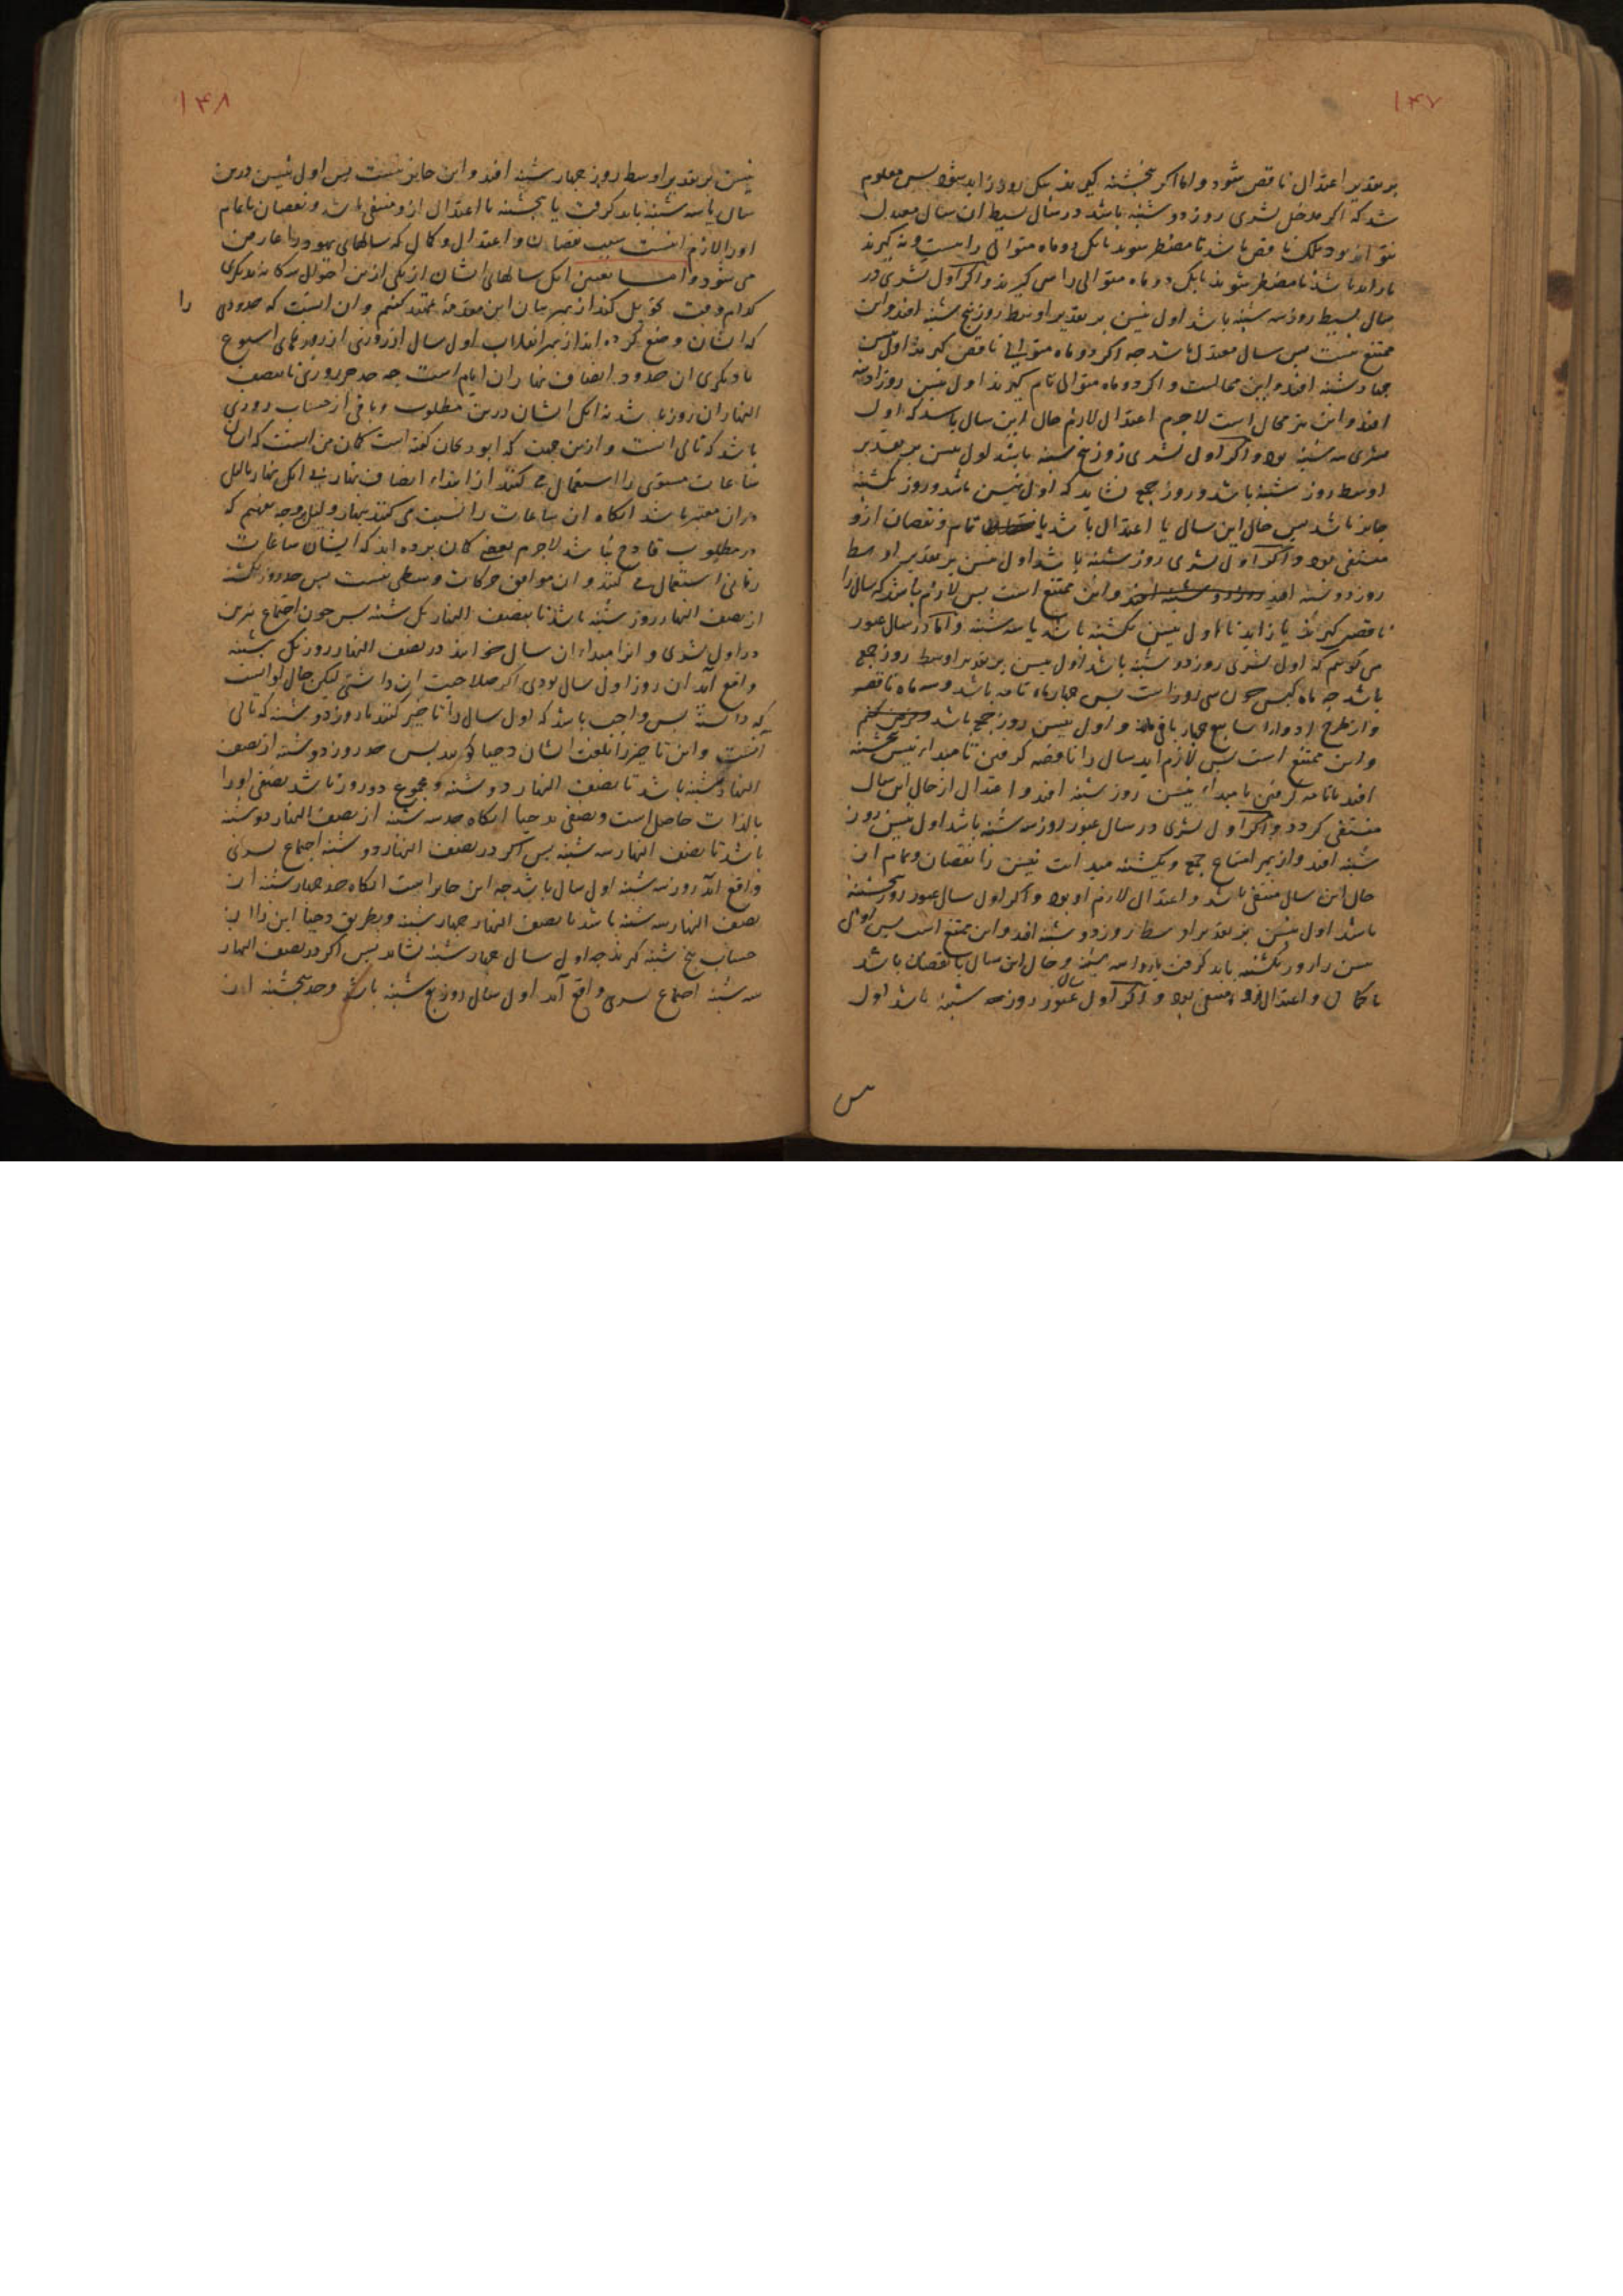 ۱۴۷
بر تقدیر اعتدال ناقص شود و اما اکر پنجشنبه کیرند یکروز زاید شود پس معلوم
شد که اکر مدخل تشری روز دوشنبه باشد در سال بسیط ان سال معدل
نتواند بود بلک ناقص باشد تا مضطر شوند بانک دو ماه متوالی را بیست و نه کیرند
یا زاید باشد تا مضطر شوند بانک دو ماه متوالی را سی کیرند و اکر اول تشری در
سال بسیط روز سه شنبه باشد اول نیسن بر تقدیر اوسط روز پنج شنبه افتد و این
ممتنع نیست پس سال معدل باشد چه اکر دو ماه متوالی ناقص کیرند اول نیسن
چهارشنبه افتد و این محالست و اکر دو ماه متوالی تام کیرند اول نیسن روز ادینه
افتد و این نیز محال است لاجرم اعتدال لازم حال این سال باشد که اول
تشری سه شنبه بود و اکر اول تشری روز پنج شنبه باشد اول نیسن بر تقدیر
اوسط روز شنبه باشد و روز جمع نشاید که اول نیسن باشد و روز یکشنبه
جایز باشد پس حال این سال یا اعتدال باشد یا تمام و نقصان ازو
منتفی بود و اکر اول تشری روز شنبه باشد اول نیسن بر تقدیر اوسط
روز دوشنبه افتد و این ممتنع است پس لازم باشد که سال را
ناقص کیرند یا زاید تا اول نیسن یکشنبه باشد یا سه شنبه و اما در سال عبور
می کوئیم که اول تشری روز دوشنبه باشد اول نیسن بر تقدیر اوسط روز جمع
باشد چه ماه کبس چون سی روز است پس چهار ماه تامه باشد و سه ماه ناقصه
و از طرح ادوار اسابیع چهار باقی ماند و اول نیسن روز جمع باشد
و این ممتنع است پس لازم اید سال را ناقصه کرفتن تا مبداء نیسن پنجشنبه
افتد یا تامه کرفتن تا مبداء نیسن روز شنبه افتد و اعتدال از حال این سال
منتفی کردد و اکر اول تشری در سال عبور روز سه شنبه باشد اول نیسن روز
شنبه افتد و از بهر امتناع جمع و یکشنبه مبدائیت نیسن را نقصان و تمام از
حال این سال منتفی باشد و اعتدال لازم او بود و اکر اول سال عبور روز پنجشنبه
باشد اول نیسن بر تقدیر اوسط روز دوشنبه افتد و این ممتنع است پس اول
نیسن را روز یکشنبه باید کرفت یا روز سه شنبه و حال این سال یا نقصان باشد
یا کمال و اعتدال ازو منتفی بود و اکر اول سال عبور روز شنبه باشد اول
۱۴۸
نیسن بر تقدیر اوسط روز چهارشنبه افتد و این جایز نیست پس اول نیسن درین
سال یا سه شنبه باید کرفت یا پنجشنبه یا اعتدال ازو منتفی باشد و نقصان یا تمام
او را لازم اینست سبب نقصان و اعتدال و کمال که سالهای یهود را عارض
می شود و اما تعیین انک سالهای ایشان از یکی ازین احوال سه کانه بدیکری
کدام وقت تحویل کند از بهر بیان این مقدمه ممهّد کنیم و ان اینست که حدودی را
که ایشان وضع کرده اند از بهر انقلاب اول سال از روزی از روزهای اسبوع
با دیکری ان حدود انصاف نهار ان ایام است چه حد هر روزی تا نصف
النهار ان روز باشد نه انک ایشان درین مطلوب و باقی از حساب روزی
باشد که تالی انست و ازین جهت که ابو ریحان کفته است کمان من انست که ایشان
ساعات مستوی را استعمال می کنند از ابتداء انصاف نهار بی انک نهار یا لیل
دران معتبر باشد انکاه ان ساعات را نسبت می کنند بنهار و لیل و جه مبهم که
در مطلوب قادح نباشد لاجرم بعضی کمان برده اند که ایشان ساعات
زمانی استعمال می کنند و ان موافق حرکات وسطی نیست پس حد روز یکشنبه
از نصف النهار روز شنبه باشد تا بنصف النهار یک شنبه پس چون اجتماع نیرین
در اول تشری و انرا مبداء ان سال خوانند در نصف النهار روز یک شنبه
واقع آید ان روز اول سال بودی اکر صلاحیت ان داشتی لیکن حال او انست
که دانسته پس واجب باشد که اول سال را تاخیر کنند تا روز دوشنبه که تالی
انست و این تاخیر را بلغت ایشان دحیا کویند پس حد روز دوشنبه از نصف
النهار یکشنبه باشد تا بنصف النهار دوشنبه و مجموع دو روز باشد نصفی او را
بالذات حاصل است و نصفی بدحیا انکاه حد سه شنبه از نصف النهار دوشنبه
باشد تا نصف النهار سه شنبه پس اکر در نصف النهار دوشنبه اجتماع تشری
واقع آید روز سه شنبه اول سال باشد چه این جایز است انکاه حد چهارشنبه از
نصف النهار سه شنبه باشد تا نصف النهار چهارشنبه و بطریق دحیا این را از
حساب پنج شنبه کیرند چه اول سال چهارشنبه نشاید پس اکر در نصف النهار
سه شنبه اجتماع تشری واقع آید اول سال روز پنج شنبه باشد و حد پنجشنبه از